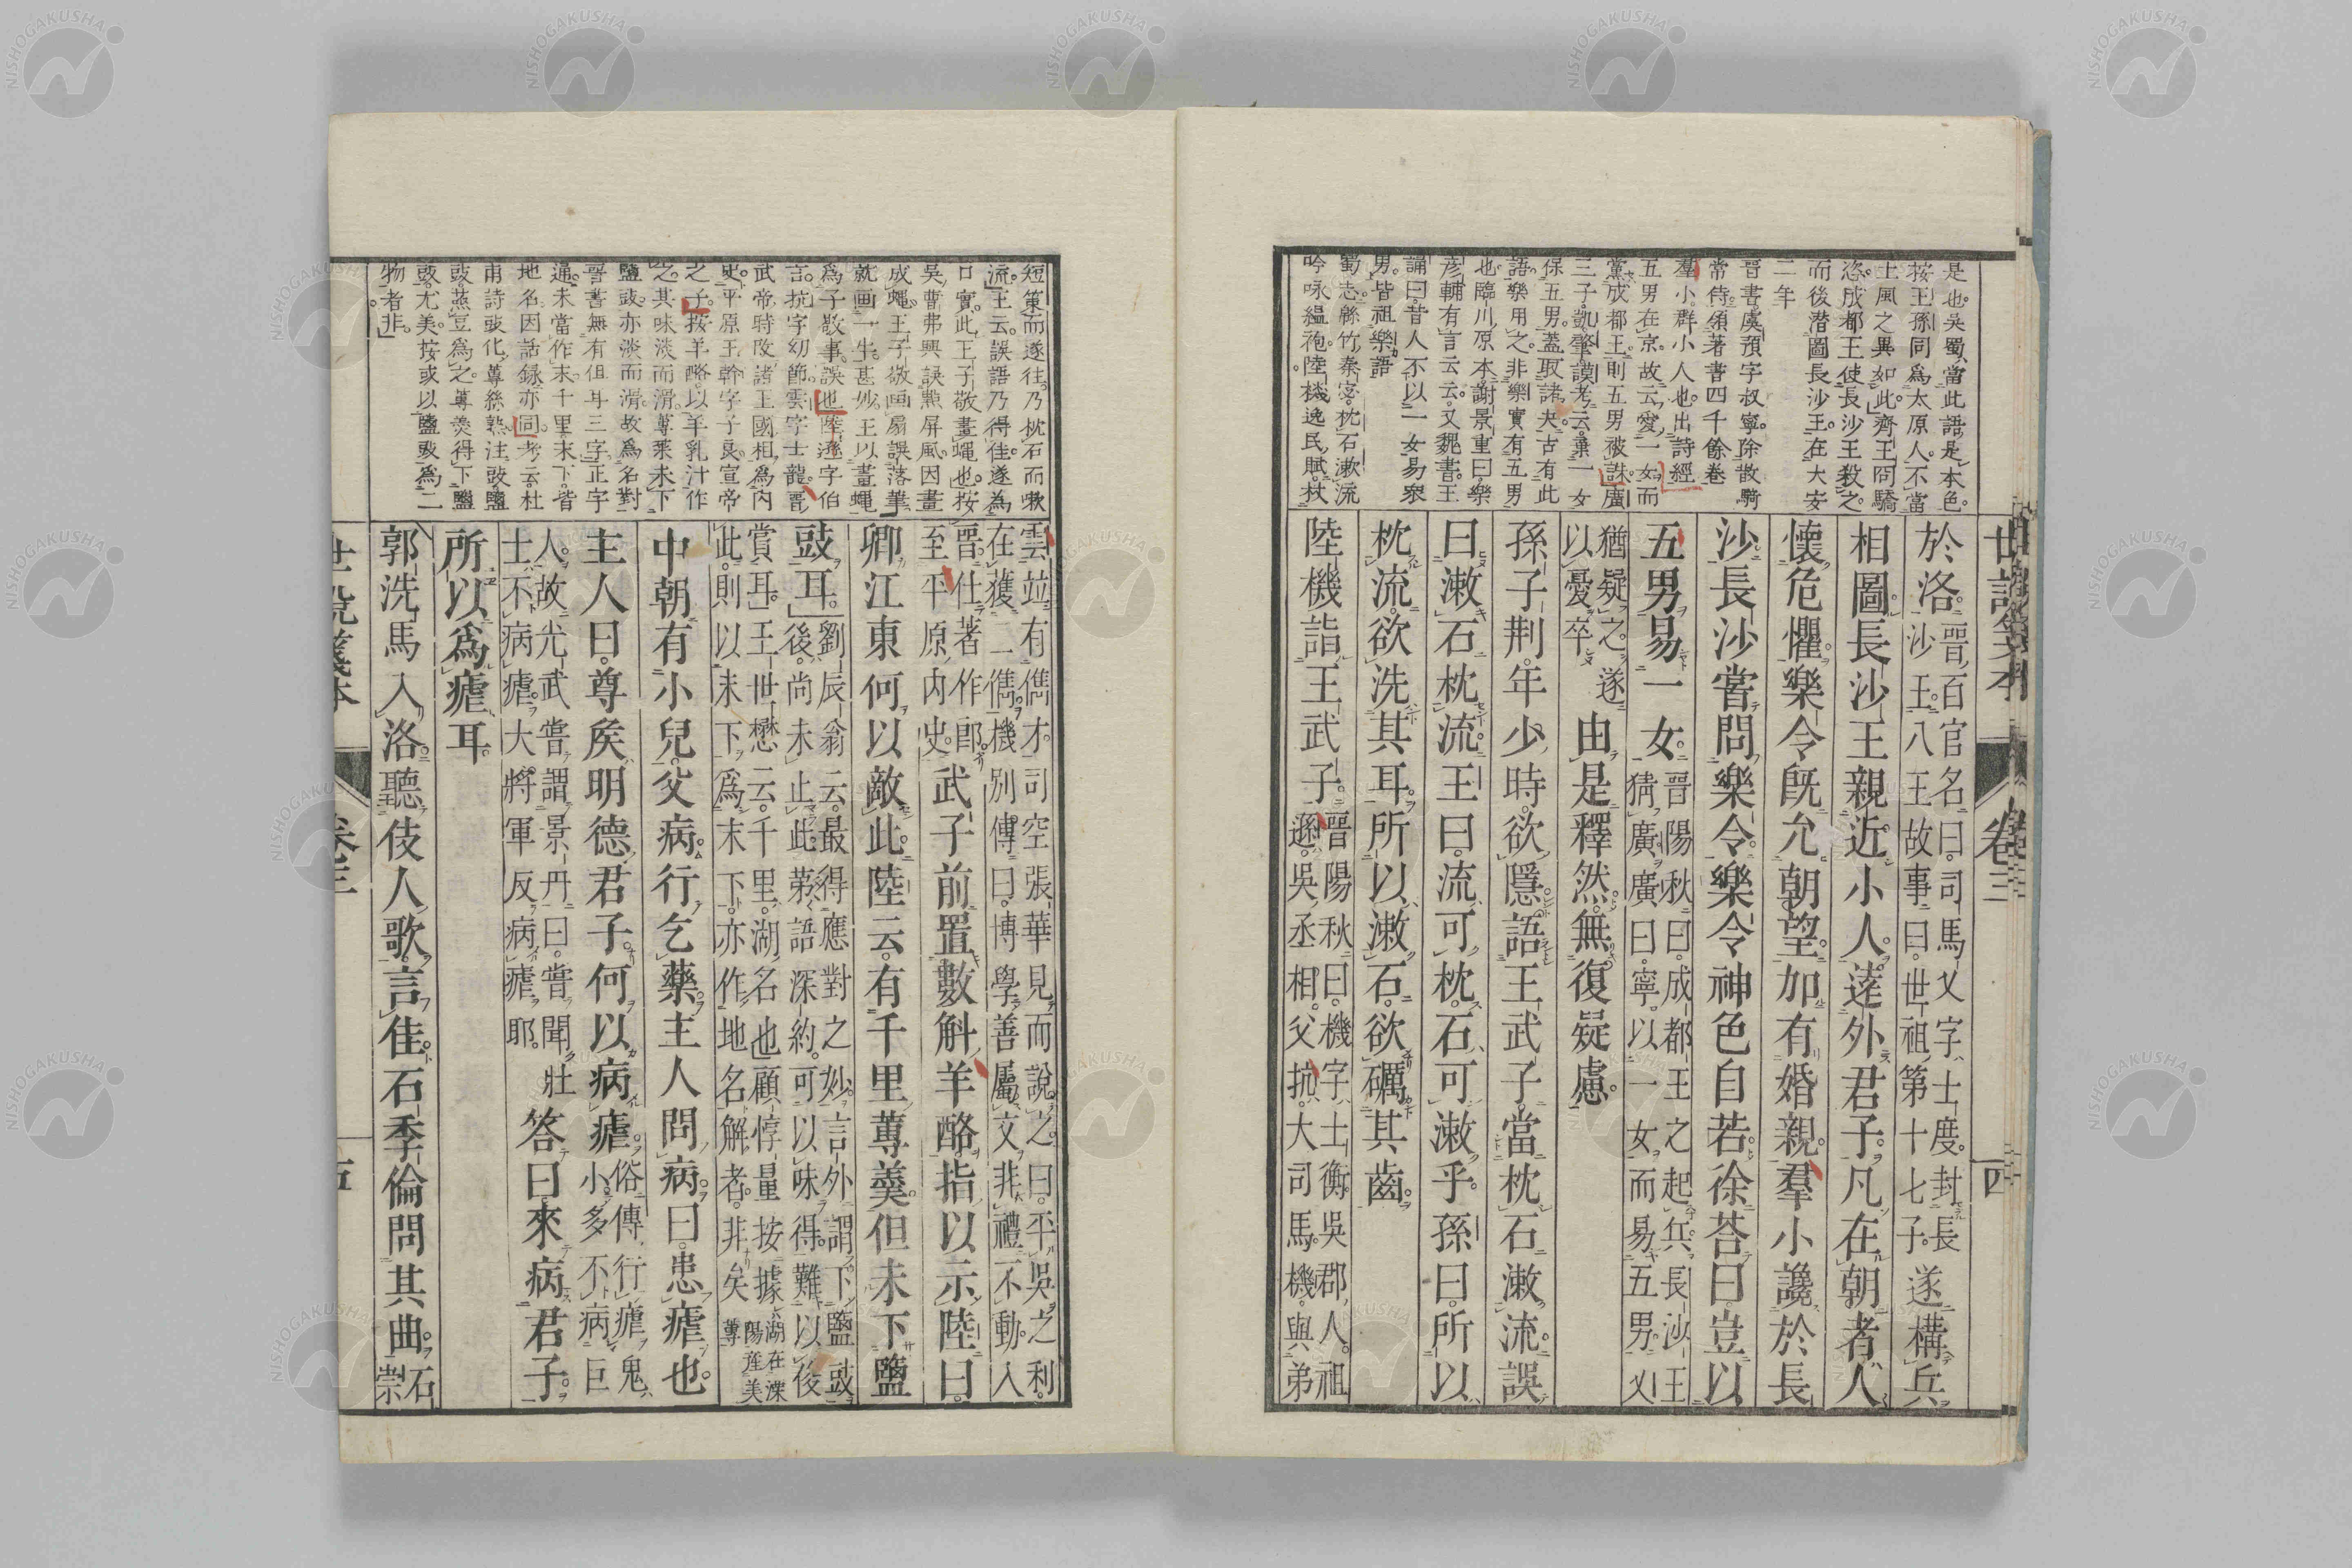 世說箋本
卷三
四
是也吳蜀當此語是本色
按王孫同爲太原人不當
土風之異如此齊王冏驕
恣成都王使長沙王殺之
而後潛圖長沙王在大安
二年
晉書虞預字叔寧除散騎
常侍領著書四千餘卷
羣小群小人也出詩經
五男在京故云愛一女而
黨成都王則五男被誅廣
三子凱肇謨考云棄一女
保五男蓋取諸夬古有此
語樂用之非樂實有五男
也臨川原本謝景重曰樂
彥輔有言云云又魏書王
誦曰昔人不以一女易衆
男皆祖樂語
蜀志緜竹秦宓枕石漱流
吟咏縕袍陸機逸民賦杖
於洛晉百官名曰司馬乂字士度封長
沙王八王故事曰世祖第十七子遂構兵
相圖長沙王親近小人遠外君子凡在朝者人
懷危懼樂令旣允朝望加有婚親羣小讒於長
沙長沙嘗問樂令樂令神色自若徐荅曰豈以
五男易一女晉陽秋曰成都王之起兵長沙王
猜廣廣曰寧以一女而易五男乂
猶疑之遂
以憂卒由是釋然無復疑慮
孫子荆年少時欲隱語王武子當枕石漱流誤
曰漱石枕流王曰流可枕石可漱乎孫曰所以
枕流欲洗其耳所以漱石欲礪其齒
陸機詣王武子晉陽秋曰機字士衡吳郡人祖
遜吳丞相父抗大司馬機與弟
短策而遂往乃枕石而漱
流王云誤語乃得佳遂爲
口實此王子敬畫蠅也按
吳曹弗興誤㸃屏風因畫
成蠅王子敬画扇誤落筆
就画一牛甚妙王以畫蠅
爲子敬事誤也陸遜字伯
言抗字幼節雲字士龍晉
武帝時改諸王國相爲內
史平原王幹字子良宣帝
之子按羊酪以羊乳汁作
之其味淡而滑蓴菜未下
鹽豉亦淡而滑故爲名對
晉書無有但耳三字正字
通末當作末千里末下皆
地名因話録亦同考云杜
甫詩豉化蓴絲熟注豉鹽
豉蒸豆爲之蓴羹得下鹽
豉尤美按或以鹽豉爲二
物者非
雲並有儁才司空張華見而說之曰平吳之利
在獲二儁機別傳曰博學善屬文非禮不動入
晉仕著作郎
至平原內史武子前置數斛羊酪指以示陸曰
卿江東何以敵此陸云有千里蓴羹但未下鹽
豉耳劉辰翁云最得應對之妙言外謂下鹽豉
後尚未止此苐語深約可以味得難以後
賞耳王世懋云千里湖名也顧惇量按據湖在溧陽産美蓴
此則以未下爲末下亦作地名解者非矣
中朝有小兒父病行乞藥主人問病曰患瘧也
主人曰尊矦明德君子何以病瘧俗傳行瘧鬼
小多不病巨
人故光武嘗謂景丹曰嘗聞壯
士不病瘧大將軍反病瘧耶答曰來病君子
所以爲瘧耳
郭洗馬入洛聽伎人歌言佳石季倫問其曲石
崇
世說箋本
卷三
五